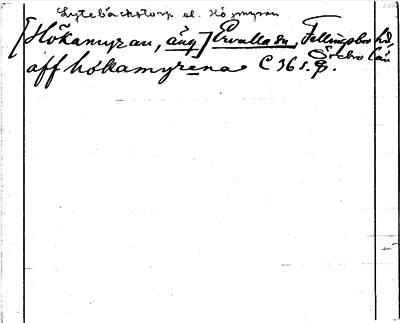 Lytebäckstorp el. Högmyran
[Hökamyran, äng] Ervalla sn, Fellingsbro hd,
Örebro län
aff hökamyrena C 36 s. 9.